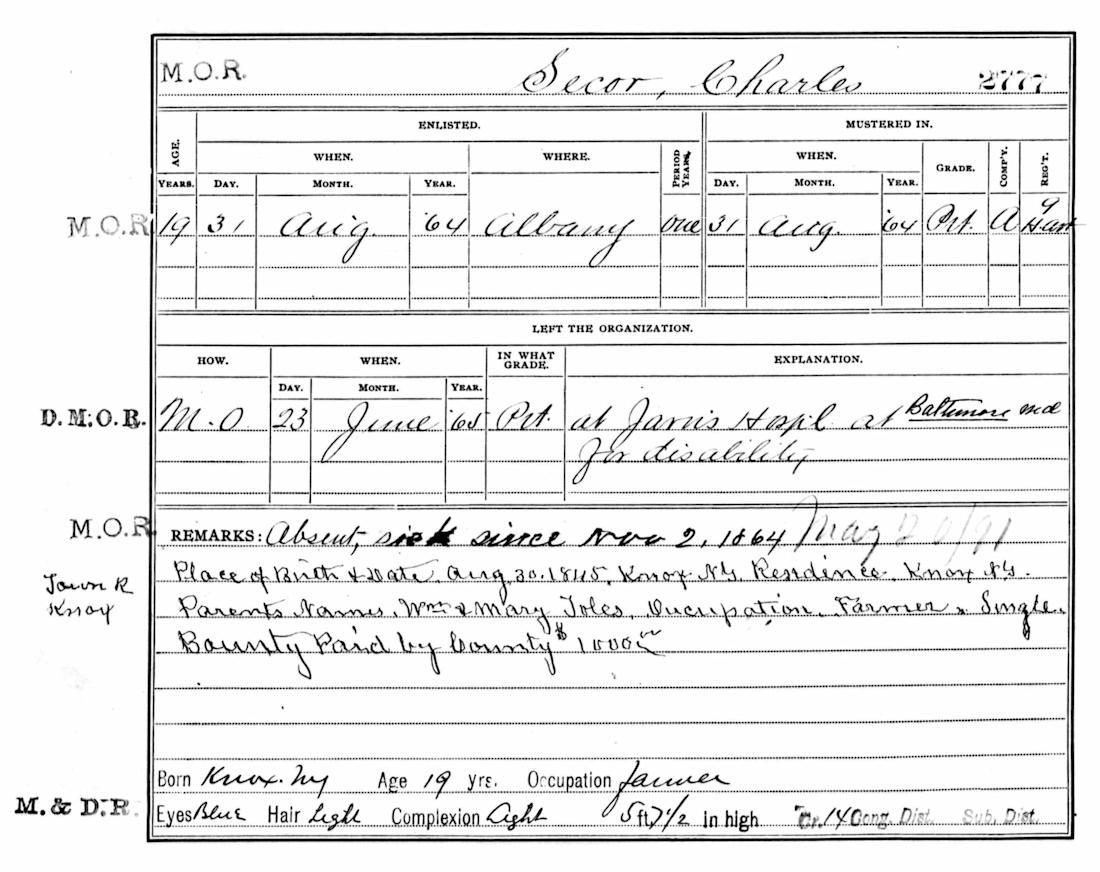 M.O.R. Secor, Charles 2777
ENLISTED. MUSTERED IN.
AGE. WHEN. WHERE. PERIOD YEARS. WHEN. GRADE. COMP'Y. REG'T.
YEARS. DAY. MONTH. YEAR. DAY. MONTH. YEAR.
M.O.R 19 31 Aug. '64 Albany One 31 Aug. '64 Pvt. A 9 H. Art
LEFT THE ORGANIZATION.
HOW. WHEN. IN WHAT GRADE. EXPLANATION.
DAY. MONTH. YEAR.
D.M.O.R. M.O 23 June '65 Pvt. at Jarvis Hospl at Baltimore Md
for disability
M.O.R REMARKS: Absent, sick since Nov 2, 1864 May 20/91
Town R Place of Birth & Date, Aug. 30. 1845, Knox N.Y. Residence, Knox N.Y.
Knox Parents Names, Wm & Mary Toles, Occupation, Farmer, Single.
Bounty Paid by County $1000 00
Born Knox. Ny Age 19 yrs. Occupation farmer
M. & D.R. Eyes Blue Hair Light Complexion Light 5 ft 7 1/2 in high Cr. 14 Cong. Dist. Sub. Dist.